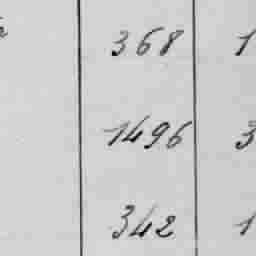 368 1
1496 3
342 1